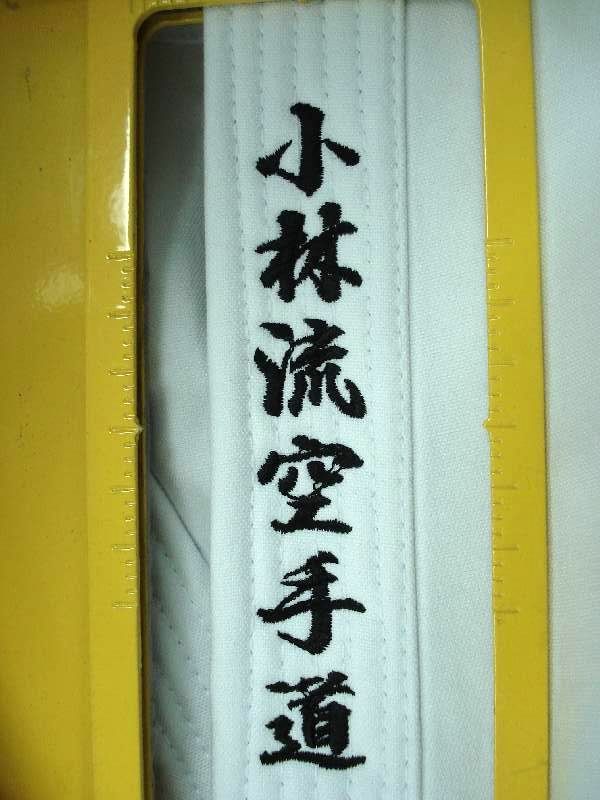 小林流空手道